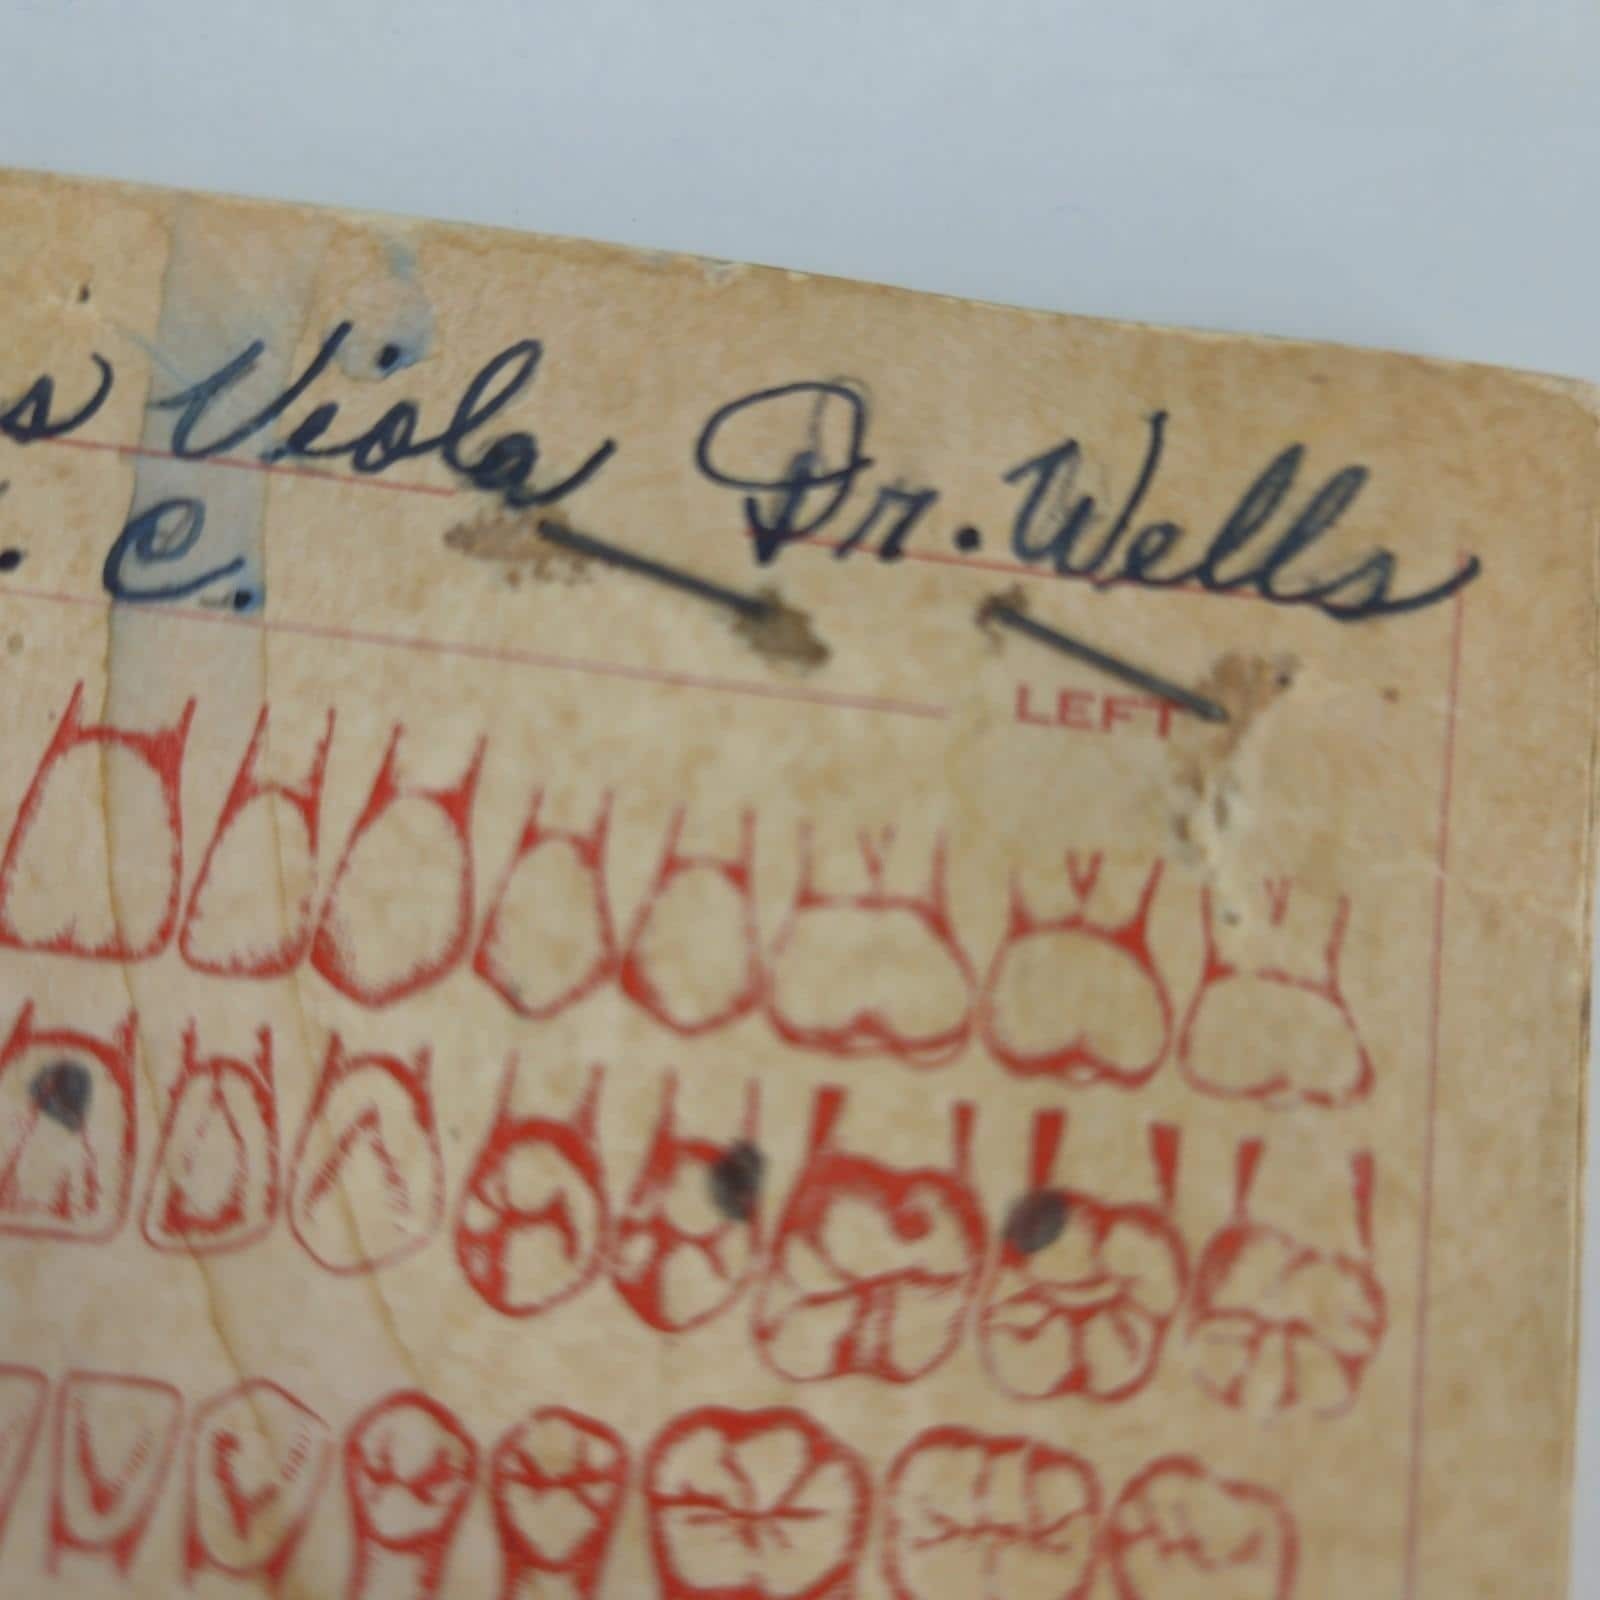 s Viola Dr. Wells
. C.
LEFT